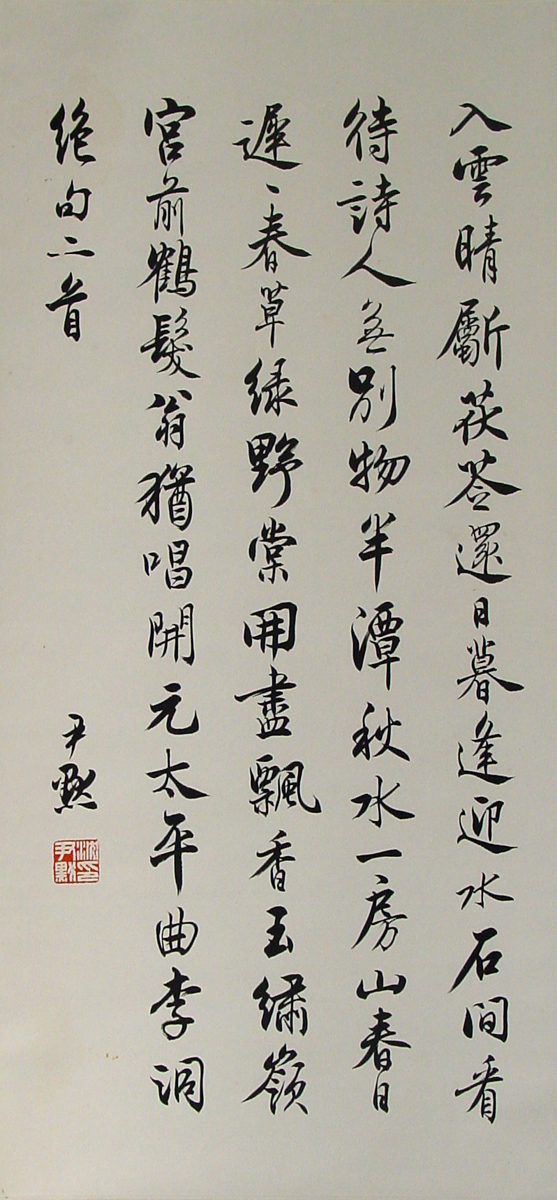 入雲晴斸茯苓還日暮逢迎水石間看
待詩人無別物半潭秋水一房山春日
遲〻春草綠野棠開盡飄香玉繡嶺
宮前鶴髮翁猶唱開元太平曲李洞
絕句二首
尹默
沈尹默印